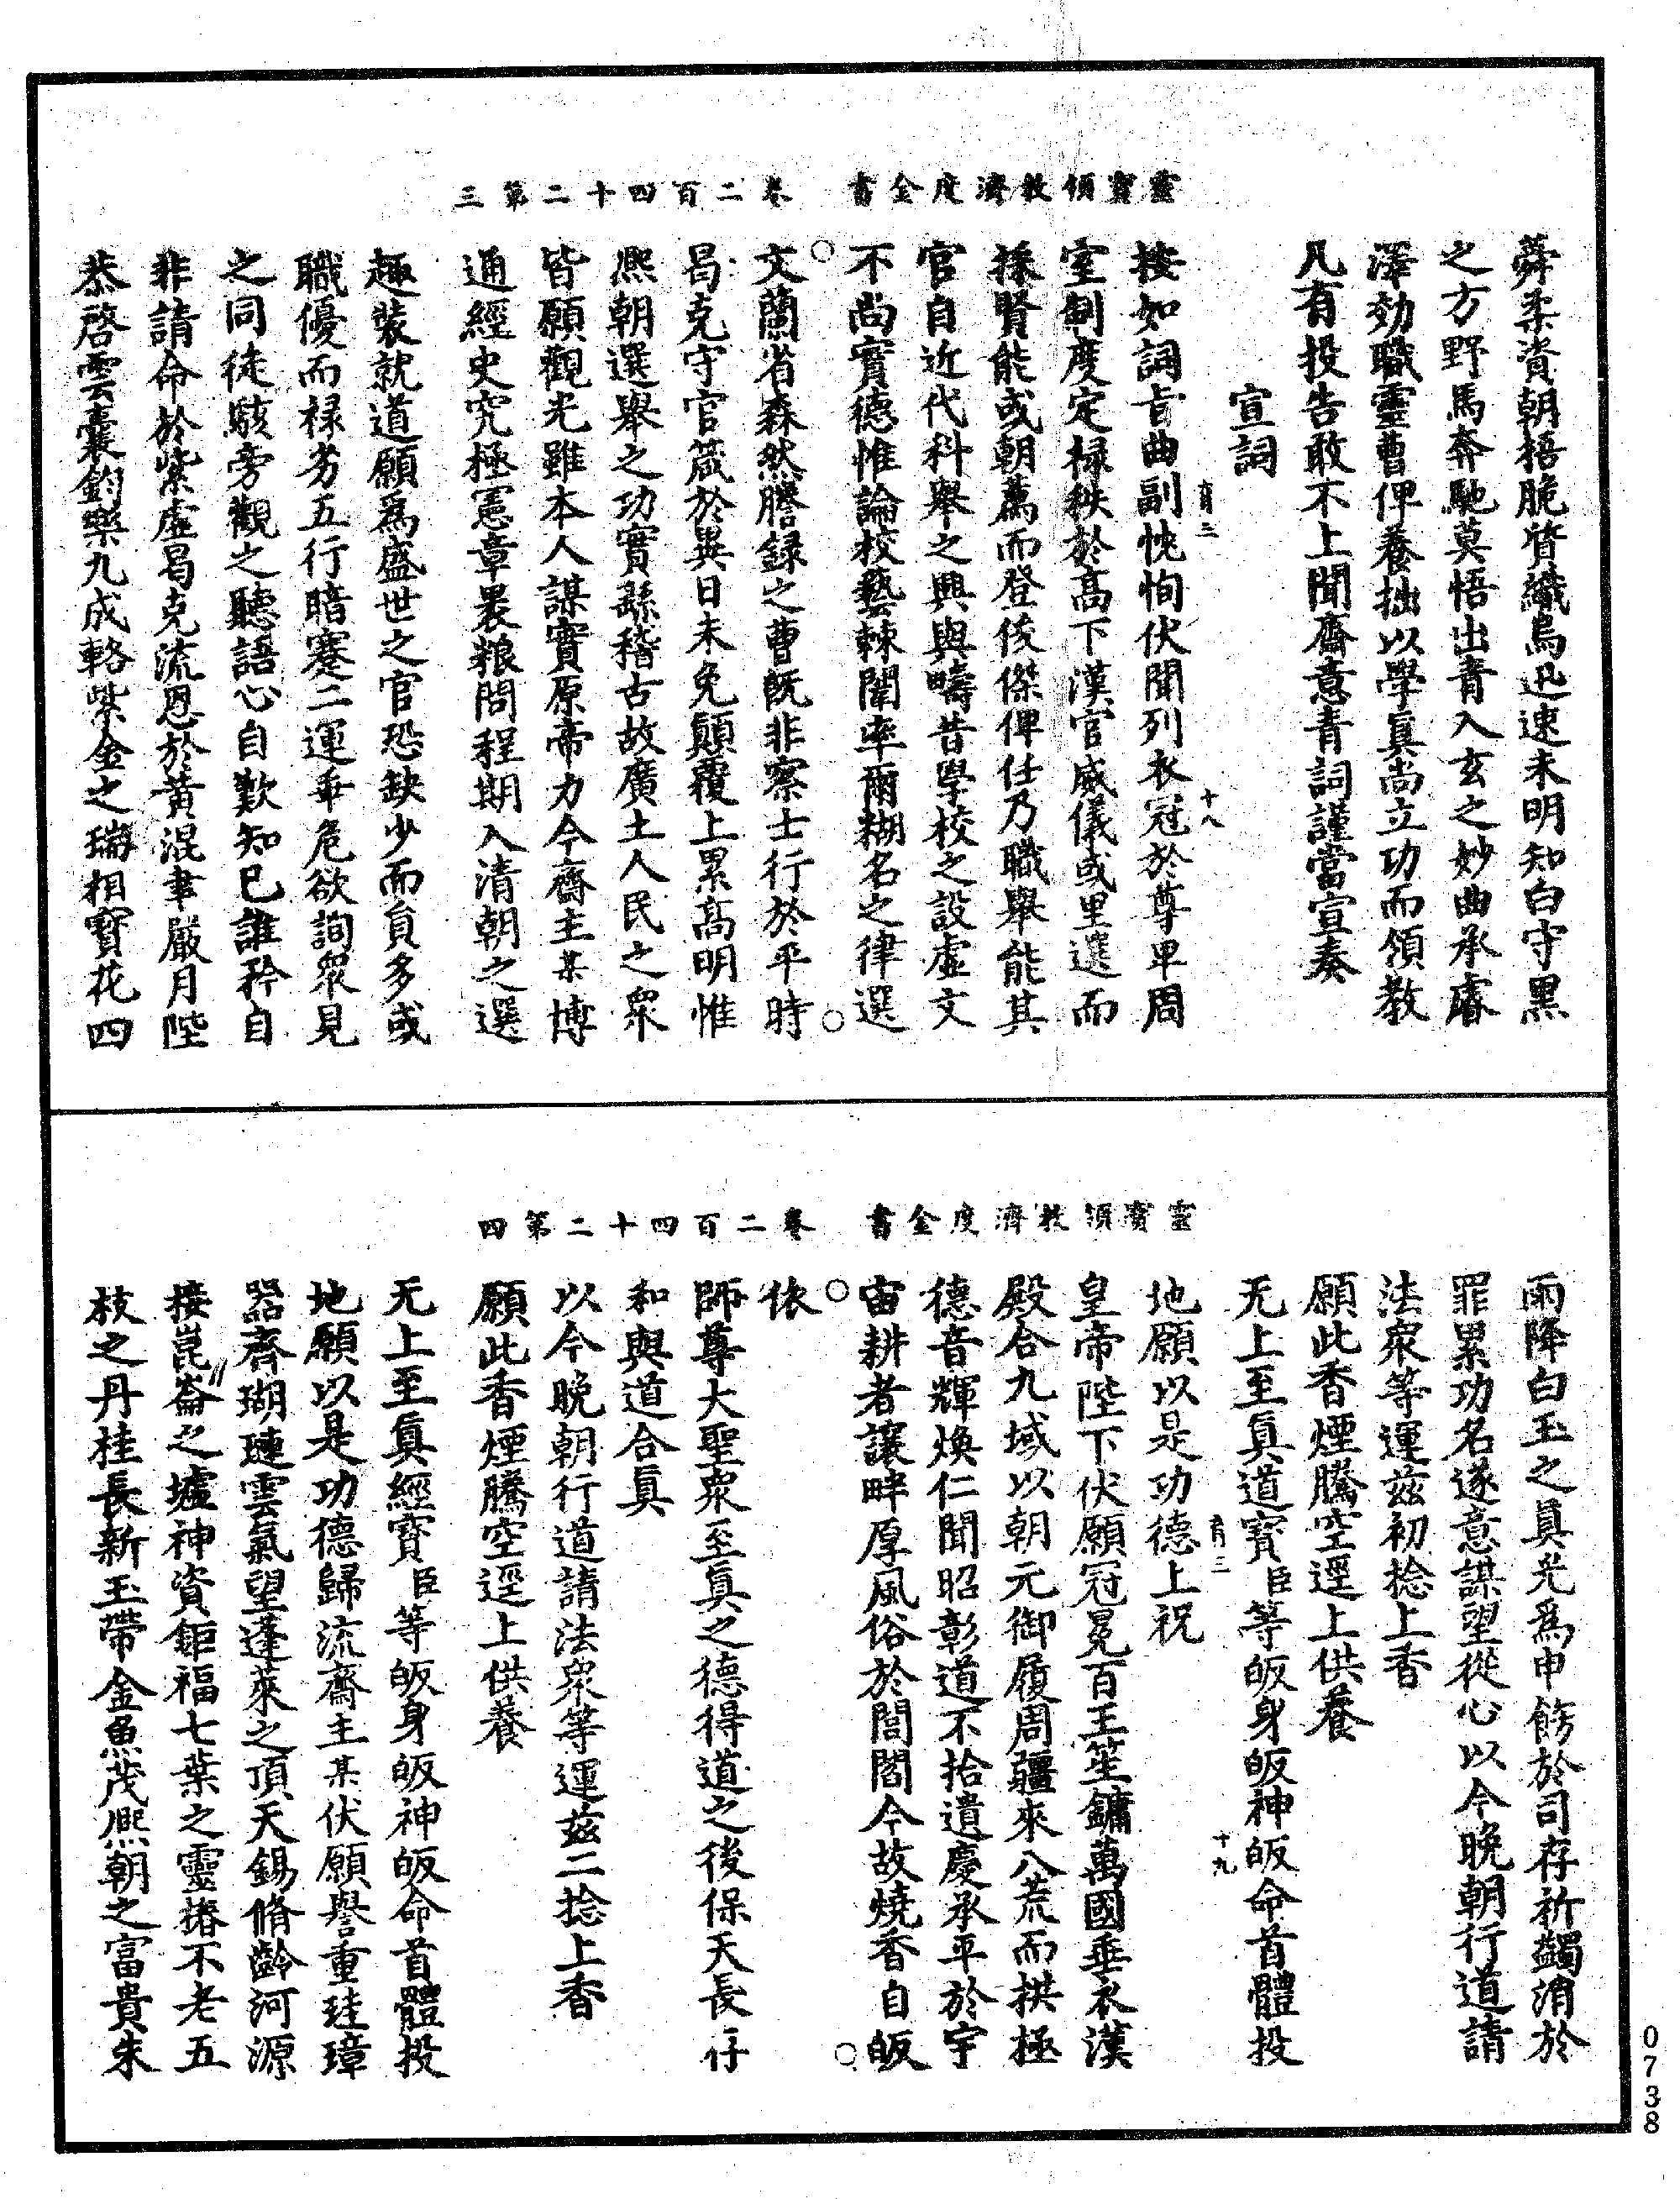 靈寶領教濟度全書　卷二百四十二第三
蕣柔資朝捂脆質纖烏迅速未明知白守黑
之方野馬奔馳莫悟出青入玄之妙曲承睿
澤効職靈曹俾養拙以學眞尚立功而領教
凡有投告敢不上聞齋意青詞謹當宣奏
宣詞
按如詞旨曲副悃恂伏聞列衣冠於尊卑周
室制度定禄秩於高下漢官威儀或里選而
採賢能或朝薦而登俊傑俾仕乃職舉能其
官自近代科舉之興與疇昔學校之設虛文
不尚實德惟論校藝棘闈率爾糊名之律選
文蘭省森然謄録之曹旣非察士行於平時
曷克守官箴於異日未免顛覆上累高明惟
熈朝選舉之功實繇稽古故廣土人民之衆
皆願觀光雖本人謀實原帝力今齋主某博
通經史究極憲章裹粮問程期入清朝之選
趣裝就道願爲盛世之官恐缺少而員多或
職優而禄劣五行暗蹇二運乖危欲詢衆見
之同徒駭旁觀之聽語心自歎知已誰矜自
非請命於紫虛曷克流恩於黃混聿嚴月陛
恭啓雲囊鈞樂九成輅紫金之瑞相寶花四
靈寶領教濟度全書　卷二百四十二第四
雨降白玉之眞光爲申餙於司存祈蠲消於
罪累功名遂意謀望從心以今晚朝行道請
法衆等運兹初捻上香
願此香煙騰空逕上供養
无上至眞道寶臣等皈身皈神皈命首體投
地願以是功德上祝
皇帝陛下伏願冠冕百王笙鏞萬國垂衣漢
殿合九域以朝元御履周疆來八荒而拱極
德音輝煥仁聞昭彰道不拾遺慶承平於宇
宙耕者讓畔厚風俗於閭閻今故燒香自皈
依
師尊大聖衆至眞之德得道之後保天長存
和與道合眞
以今晚朝行道請法衆等運兹二捻上香
願此香煙騰空逕上供養
无上至眞經寶臣等皈身皈神皈命首體投
地願以是功德歸流齋主某伏願譽重珪璋
器齊瑚璉雲氣望蓬萊之頂天錫脩齡河源
接崑崙之墟神資鉅福七葉之靈椿不老五
枝之丹桂長新玉帶金魚茂熈朝之富貴朱
十八
十九
0738